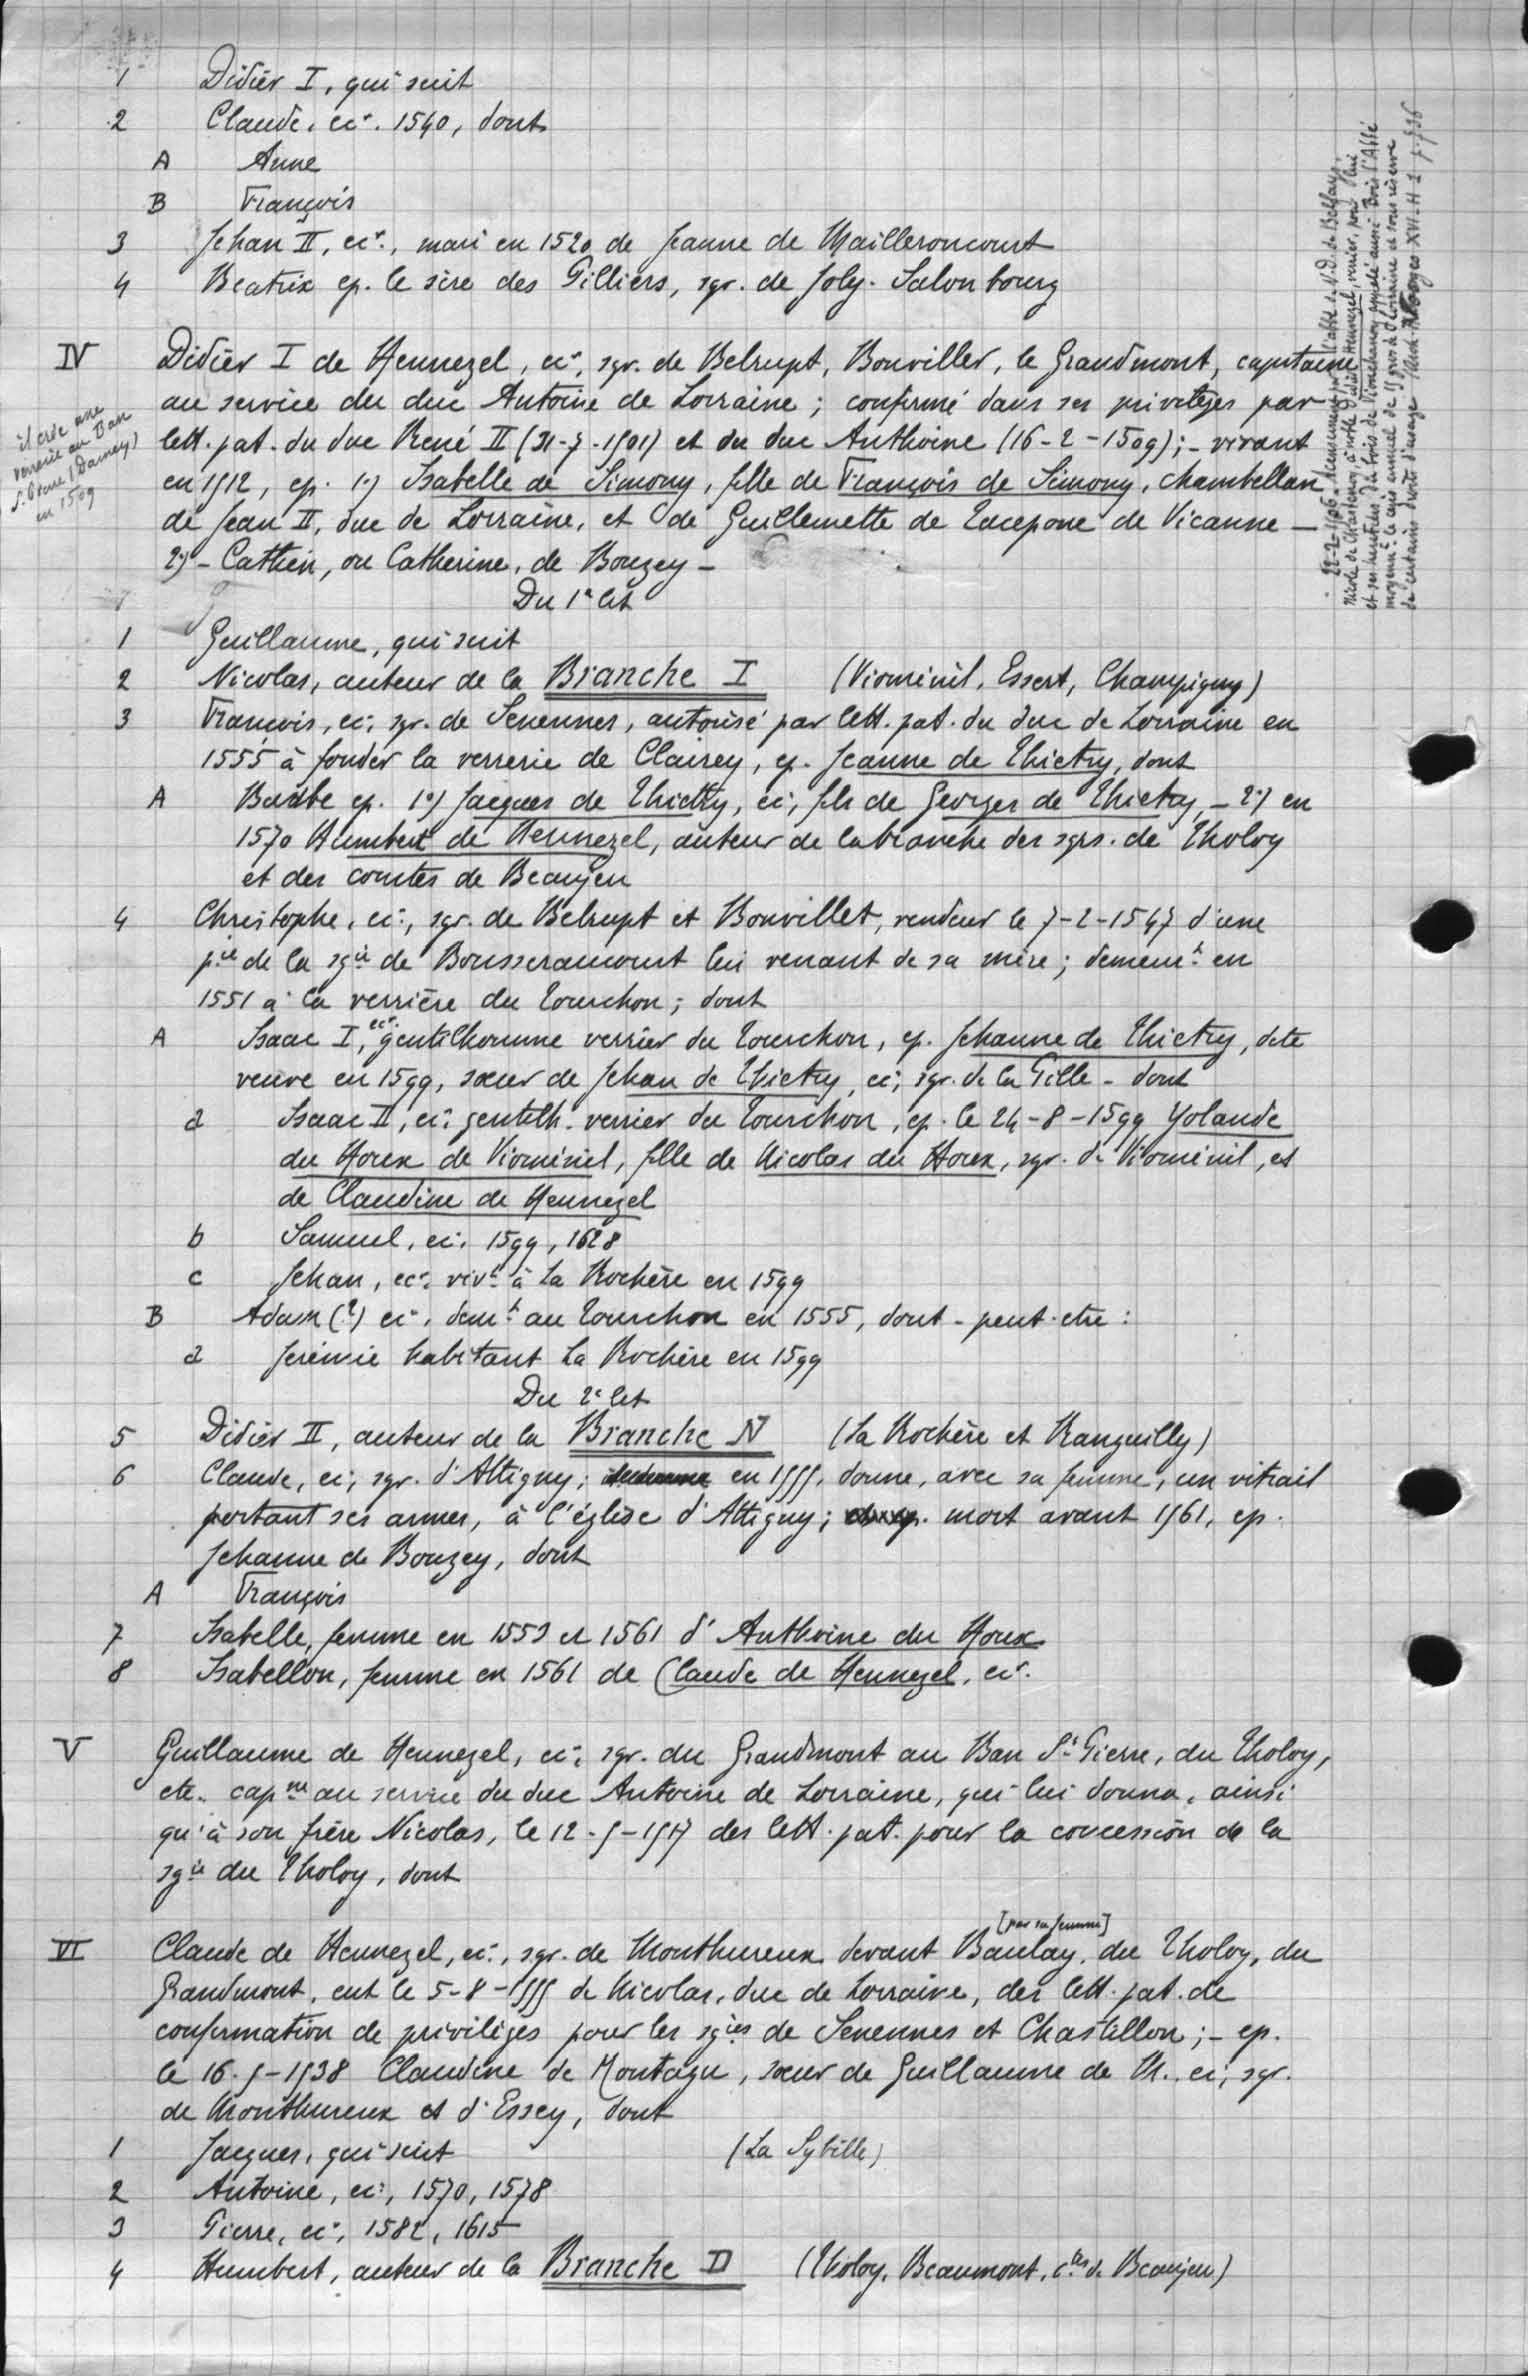 1 Didier I, qui suit
2 Claude, ecr. 1540, dont
A Anne
B François
3 Jehan II, ecr., mari en 1520 de Jeanne de Mailleroncourt
4 Beatrix ep. le sire des Gilliers, sgr. de Joly. Salonbourg
IV Didier I de Hennezel, ecr, sgr. de Belrupt, Bonviller, le Grandmont, capitaine
au service du duc Antoine de Lorraine ; confirmé dans ses privilèges par
lett. pat. du duc René II (31-7-1501) et du duc Anthoine (16-2-1509) ; - vivant
en 1512, ep. 1°) Isabelle de Simony, fille de François de Simony, chambellan
de Jean II, duc de Lorraine, et de Guillemette de de Vicanne —
2°) - Cathin, ou Catherine, de Bouzey -
il crée une
verrerie au Ban
(Darney)
en 1509
22-2-1506 - l'abbé de N.D. de Belfays,
Nicole de Chastenoy, à noble Didier Hennezel, verrier, pour lui
et ses héritiers du bois de appelé aussi Bois l'Abbé
moyenn.t le cens annuel de 15 gros de Lorraine et sous réserve
de certains droits d'usage XVI-H-1 p. 736
Du 1er lit
1 Guillaume, qui suit
2 Nicolas, auteur de la Branche I (Vioménil, Essert, Champigny)
3 François, ecr, sgr. de Senennes, autorisé par lett. pat. du duc de Lorraine en
1555 à fonder la verrerie de Clairey, ep. Jeanne de Thietry, dont
A Barbe ep. 1°) Jacques de Thietry, ecr, fils de Georges de Thietry - 2°) en
1570 Humbert de Hennezel, auteur de la branche des sgrs. de Tholoy
et des comtes de Beaujeu
4 Christophe, ecr, sgr. de Belrupt et Bonvillet, vendeur le 7-2-1547 d'une
p.ie de la sg.ie de Bousseraucourt lui venant de sa mère ; demeur.t en
1551 à la verrière du Tourchon ; dont
A Isaac I, ecr. gentilhomme verrier du Tourchon, ep. Jehanne de Thietry, dite
veuve en 1599, sœur de Jehan de Thietry, ecr, sgr. de la Pille - dont
a Isaac II, ecr. gentilh. verrier du Tourchon, ep. le 24-8-1599 Yolande
du Houx de Vioménil, fille de Nicolas du Houx, sgr. de Vioménil, et
de Claudine de Hennezel
b Samuel, ecr. 1599, 1628
c Jehan, ecr. viv.t à La Rochère en 1599
B Adam (?) ecr, dem.t au Tourchon en 1555, dont - peut-etre :
a Jérémie habitant La Rochère en 1599
Du 2e lit
5 Didier II, auteur de la Branche N (La Rochère et Ranguilly)
6 Claude, ecr, sgr. d'Attigny ; en 1555, donne, avec sa femme, un vitrail
portant ses armes, à l'église d'Attigny ; mort avant 1561, ep.
Jehanne de Bouzey, dont
A François
7 Isabelle, femme en 1553 et 1561 d'Anthoine du Houx
8 Isabellon, femme en 1561 de Claude de Hennezel, ecr.
V Guillaume de Hennezel, ecr, sgr. du Grandmont au Ban St Pierre, du Tholoy,
etc. cap.ne au service du duc Antoine de Lorraine, qui lui donna, ainsi
qu'à son frère Nicolas, le 12-5-1517 des lett. pat. pour la concession de la
sg.ie du Tholoy, dont
[par sa femme]
VI Claude de Hennezel, ecr, sgr. de Monthureux devant Baulay, du Tholoy, du
Grandmont, eut le 5-8-1555 de Nicolas, duc de Lorraine, des lett. pat. de
confirmation de privilèges pour les sg.ies de Senennes et Chastillon ; - ep.
le 16-5-1538 Claudine de Montagu, sœur de Guillaume de M., ecr, sgr.
de Monthureux et d'Essey, dont
1 Jacques, qui suit (La Sybille)
2 Antoine, ecr, 1570, 1578
3 Pierre, ecr, 1582, 1615
4 Humbert, auteur de la Branche D (Tholoy, Beaumont, c.tes de Beaujeu)